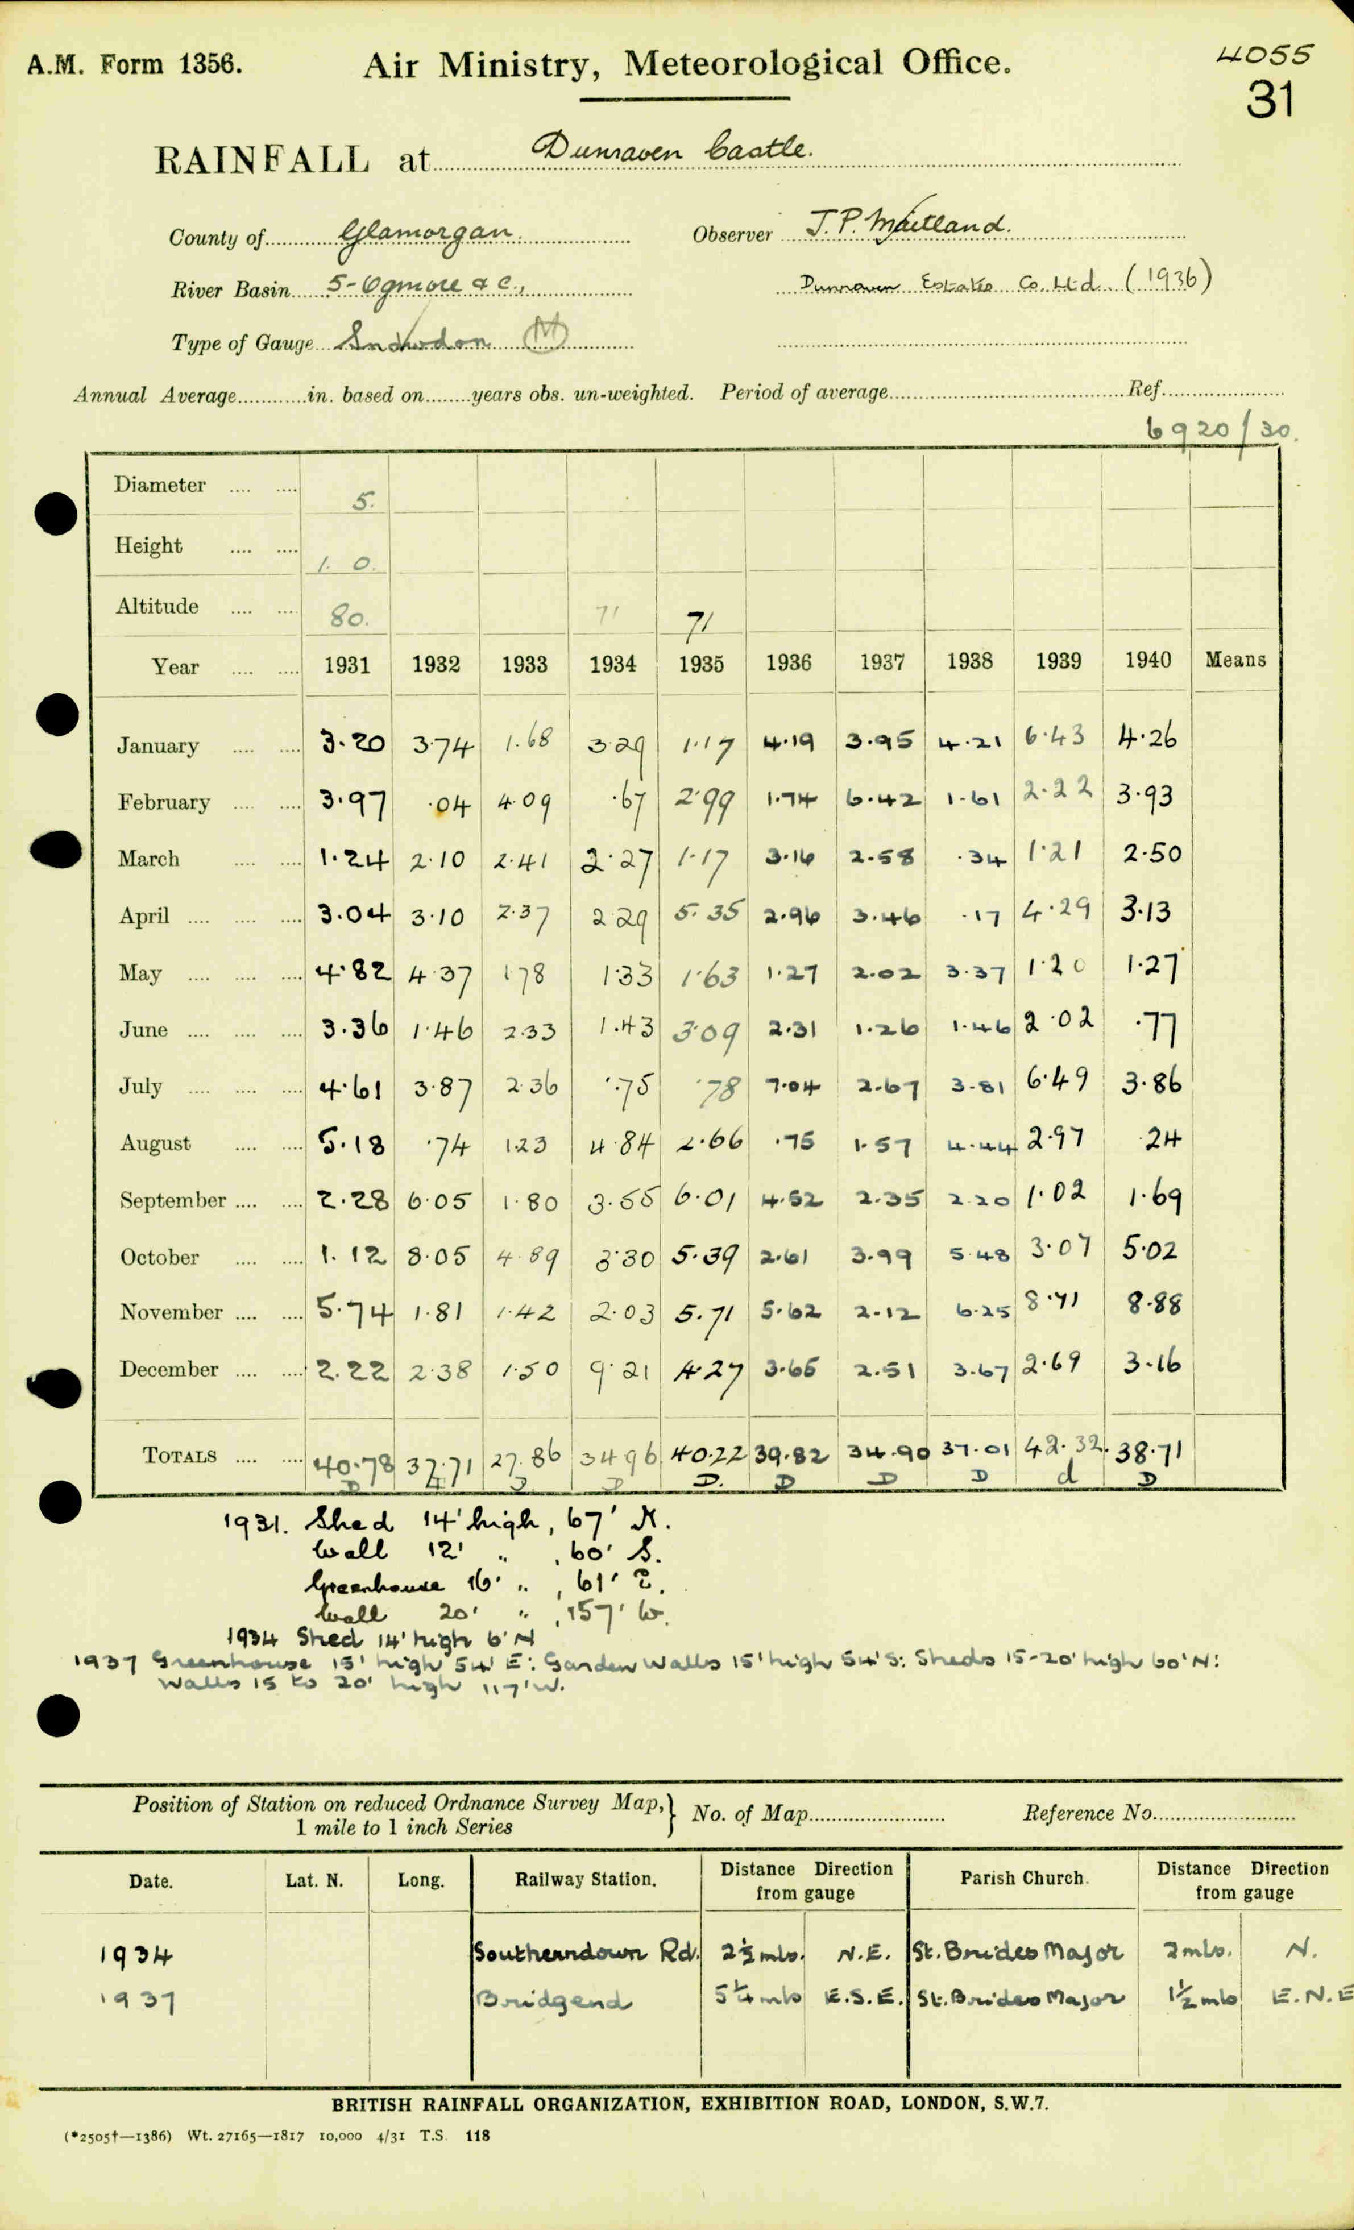 A.M. Form 1356. Air Ministry, Meteorological Office. 4055
31
RAINFALL at Dunraven Castle.
County of Glamorgan. Observer J.P. Maitland.
River Basin 5-Ogmore &c., Dunraven Estates Co. Ltd. (1936)
Type of Gauge Snowdon M
Annual Average in. based on years obs. un-weighted. Period of average Ref.
6920/30.
Diameter 5.
Height 1. 0.
Altitude 80. 71 71
Year 1931 1932 1933 1934 1935 1936 1937 1938 1939 1940 Means
January 3.20 3.74 1.68 3.29 1.17 4.19 3.95 4.21 6.43 4.26
February 3.97 .04 4.09 .67 2.99 1.74 6.42 1.61 2.22 3.93
March 1.24 2.10 2.41 2.27 1.17 3.16 2.58 .34 1.21 2.50
April 3.04 3.10 2.37 2.29 5.35 2.96 3.46 .17 4.29 3.13
May 4.82 4.37 1.78 1.33 1.63 1.27 2.02 3.37 1.20 1.27
June 3.36 1.46 2.33 1.43 3.09 2.31 1.26 1.46 2.02 .77
July 4.61 3.87 2.36 .75 .78 7.04 2.67 3.81 6.49 3.86
August 5.18 .74 1.23 4.84 2.66 .75 1.57 4.44 2.97 .24
September 2.28 6.05 1.80 3.55 6.01 4.52 2.35 2.20 1.02 1.69
October 1.12 8.05 4.89 3.30 5.39 2.61 3.99 5.48 3.07 5.02
November 5.74 1.81 1.42 2.03 5.71 5.62 2.12 6.25 8.71 8.88
December 2.22 2.38 1.50 9.21 4.27 3.65 2.51 3.67 2.69 3.16
TOTALS 40.78 37.71 27.86 34.96 40.22 39.82 34.90 37.01 42.32. 38.71
D D D. D D D d D
1931. Shed 14' high, 67' N.
Wall 12' " , 60' S.
Greenhouse 16' " , 61' E.
Wall 20' " , 157' W.
1934 Shed 14' high 6' N
1937 Greenhouse 15' high 54' E: Garden Walls 15' high 54' S: Sheds 15-20' high 60' N:
Walls 15 to 20' high 117' W.
Position of Station on reduced Ordnance Survey Map, No. of Map Reference No.
1 mile to 1 inch Series
Date. Lat. N. Long. Railway Station. Distance Direction from gauge Parish Church. Distance Direction from gauge
1934 Southerndown Rd. 2½ mls. N.E. St. Brides Major 2 mls. N.
1937 Bridgend 5¼ mls E.S.E. St. Brides Major 1½ mls E.N.E
BRITISH RAINFALL ORGANIZATION, EXHIBITION ROAD, LONDON, S.W.7.
(*2505†—1386) Wt. 27165—1817 10,000 4/31 T.S. 118